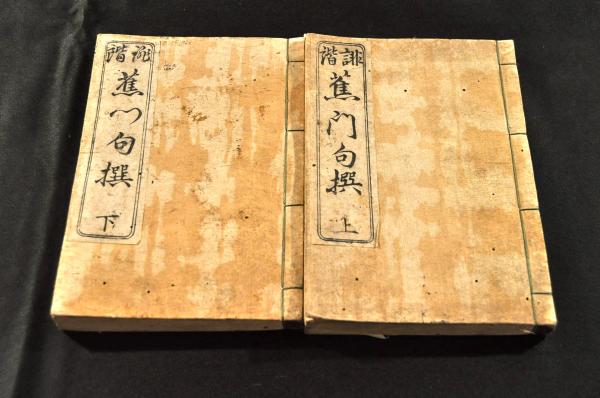 誹諧
蕉門句撰
上
誹諧
蕉門句撰
下